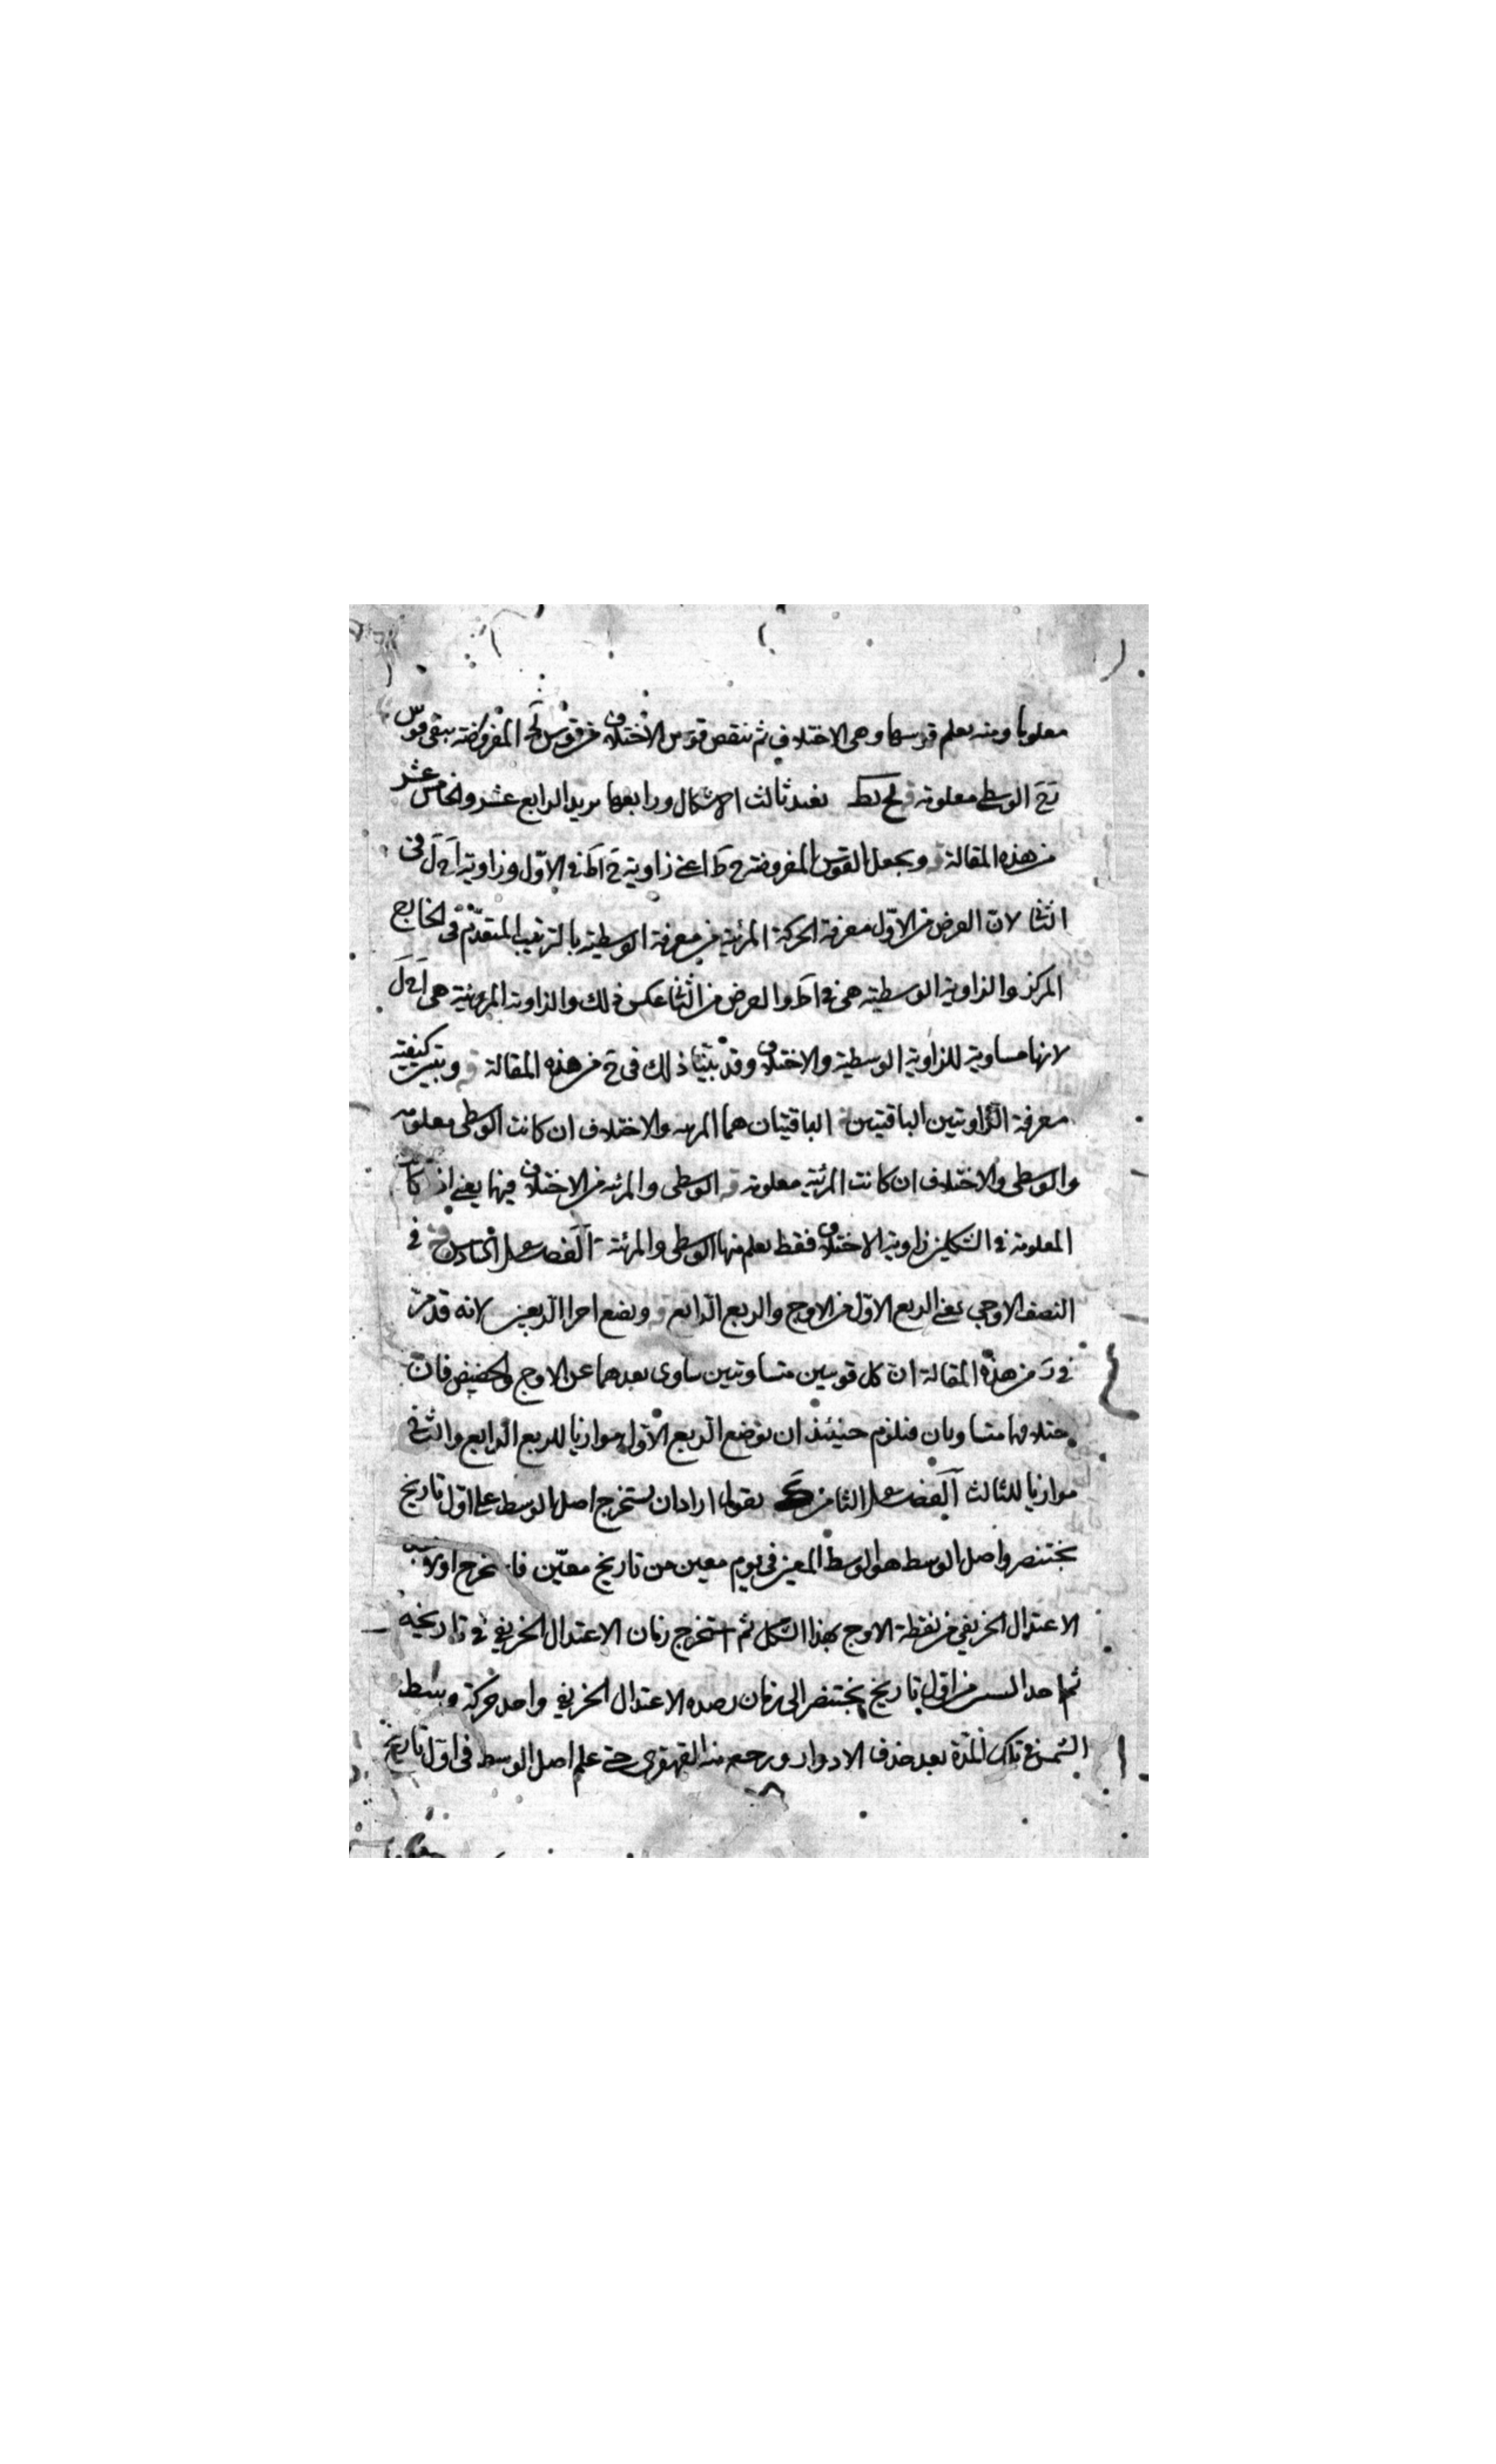 معلوما ومنه يعلم قوسها وهى الاختلاف ثم ننقص قوس الاختلاف من قوس لح المفروضة يبقى قوس
الوسطى معلومة ثالث الاشكال ورابعها يريد الرابع عشر والخامس عشر
من هذه المقالة ونجعل القوس المفروضة ح ط اعنى زاوية ح ا ط فى الاول وزاوية ا ح ل فى
الثانى لان الغرض من الاول معرفة الحركة المرئية من معرفة الوسطية بالترتيب المتقدم فى الخارج
المركز والزاوية الوسطية هى والغرض من الثانى عكس ذلك والزاوية المرئية هى ا ح ل
لانها مساوية للزاوية الوسطية والاختلاف وقد بينا ذلك فى من هذه المقالة وتبين كيفية
معرفة الزاويتين الباقيتين الباقيتان هما المرئية والاختلاف ان كانت الوسطى معلومة
والوسطى والاختلاف ان كانت المرئية معلومة الوسطى والمرئية من الاختلاف فيها يعنى اذا كانت
المعلومة فى الشكلين زاوية الاختلاف فقط يعلم منها الوسطى والمرئية الفصل السادس فى
النصف الاوجى يعنى الربع الاول من الاوج والربع الرابع ونضع اجزا الربعين لانه قد مر
فى من هذه المقالة ان كل قوسين متساويتين تساوى بعدهما عن الاوج والحضيض فان
اختلافهما متساويان فيلزم حينئذ ان يوضع الربع الاول موازيا للربع الرابع والثانى
موازيا للثالث الفصل الثامن يقول اراد ان يستخرج اصل الوسط على اول تاريخ
بختنصر واصل الوسط هو الوسط المعين فى يوم معين من تاريخ معين فاستخرج اولا
الاعتدال الخريفى من نقطة الاوج بهذا الشكل ثم استخرج زمان الاعتدال الخريفى فى تاريخه
ثم اخذ من اول تاريخ بختنصر الى زمان رصده الاعتدال الخريفى واخذ حركة وسط
الشمس فى تلك المدة بعد حذف الادوار ورجع منه القهقرى حتى علم اصل الوسط فى اول تاريخ